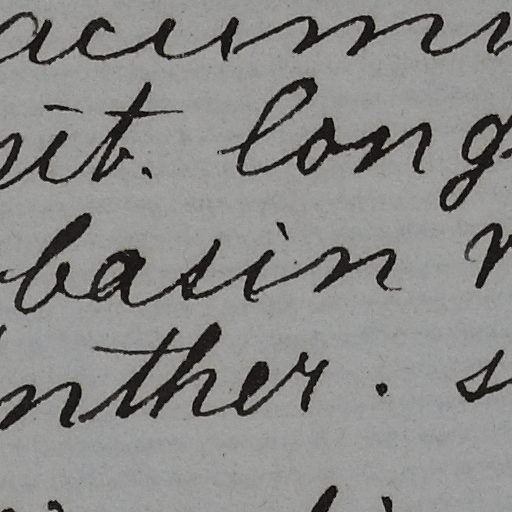 acum
sit. long
basin
nther. s